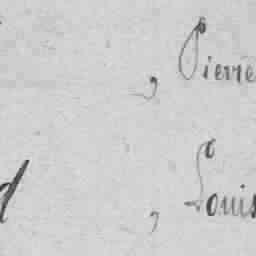 , Pierre
d , Louis